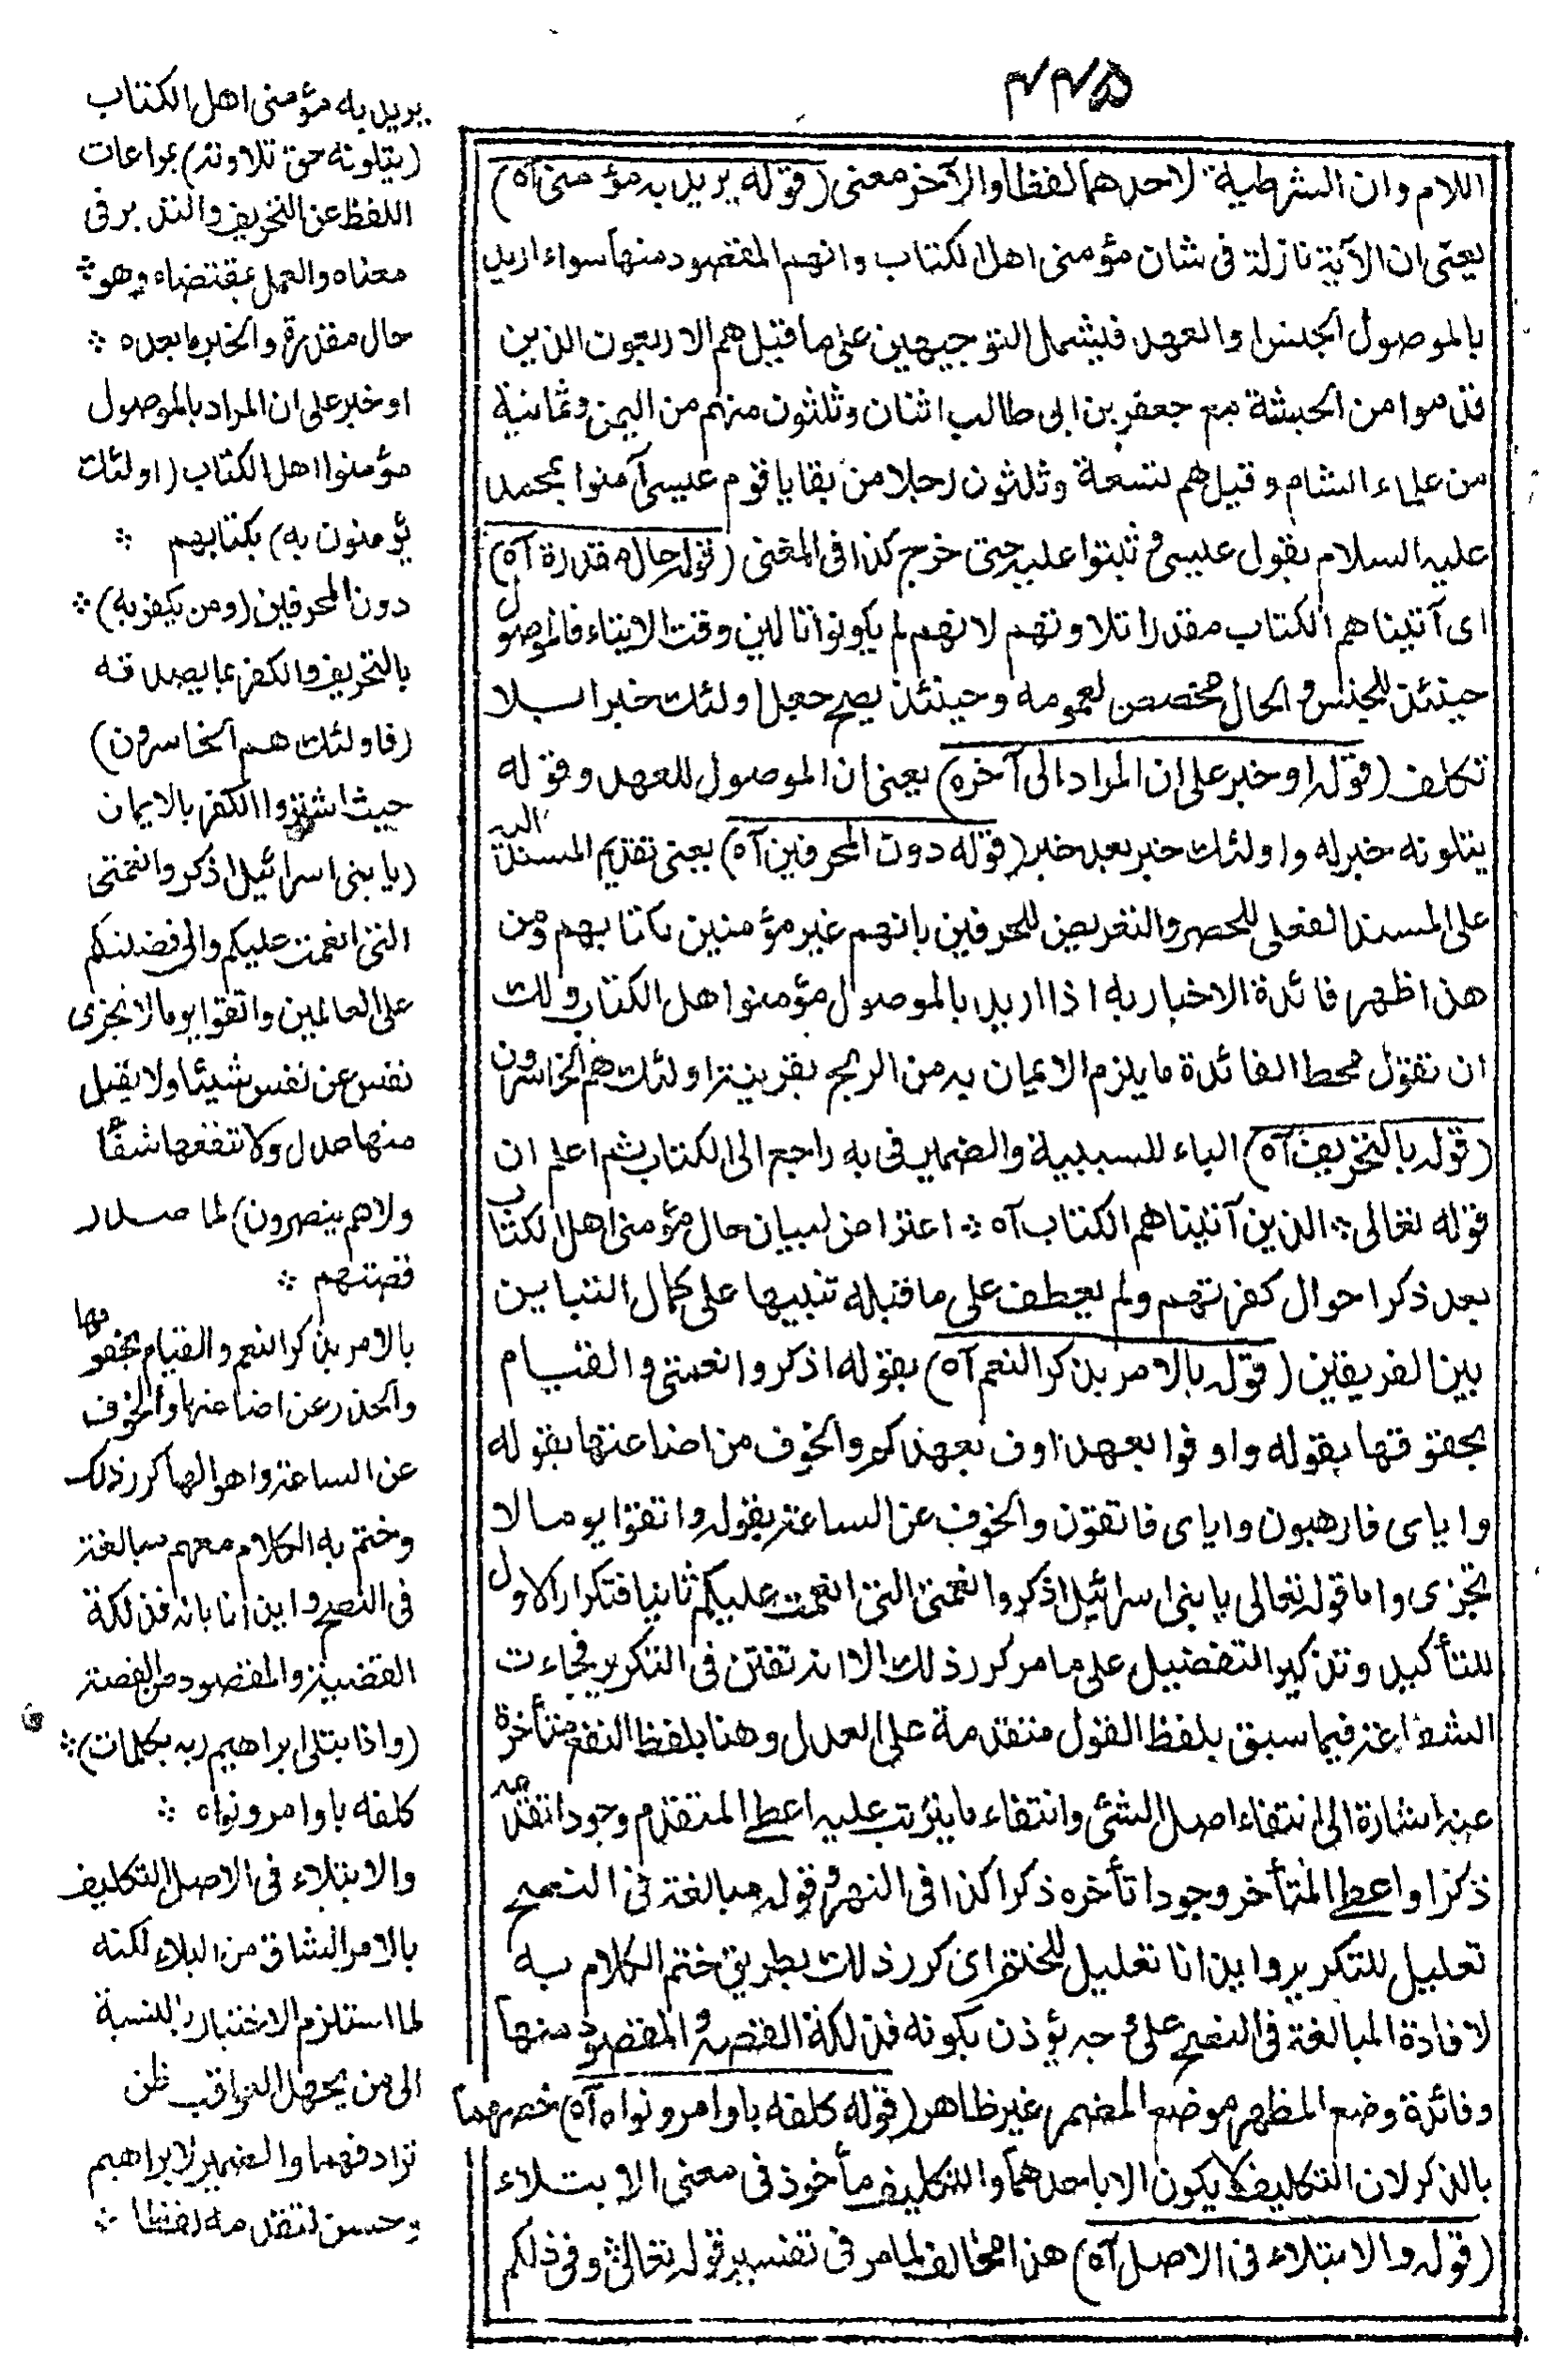 ٤٤٥
اللام وان الشرطية لاحدهما لفظا والآخر معنى (قوله يريد به مؤمنى آه)
يعنى ان الآية نازلة فى شان مؤمنى اهل الكتاب وانهم المقصود منها سواء اريد
بالموصول الجنس او العهد فيشمل التوجيهين على ما قيل هم الاربعون الذين
قدموا من الحبشة مع جعفر بن ابى طالب اثنان وثلثون منهم من اليمن وثمانية
من علماء الشام وقيل هم تسعة وثلثون رجلا من بقايا قوم عيسى آمنوا بمحمد
عليه السلام بقول عيسى وثبتوا عليه حتى خرج كذا فى المغنى (قوله حال مقدرة آه)
اى آتيناهم الكتاب مقدرا تلاوتهم لانهم لم يكونوا تالين وقت الايتاء فالموصول
حينئذ للجنس والحال مخصص لعمومه وحينئذ يصح جعل اولئك خبرا بلا
تكلف (قوله او خبر على ان المراد الى آخره) يعنى ان الموصول للعهد وقوله
يتلونه خبر له واولئك خبر بعد خبر (قوله دون المحرفين آه) يعنى تقديم المسند اليه
على المسند الفعلى للحصر والتعريض للمحرفين بانهم غير مؤمنين بكتابهم ومن
هذا ظهر فائدة الاخبار به اذا اريد بالموصول مؤمنوا اهل الكتاب ولك
ان تقول محط الفائدة ما يلزم الايمان به من الربح بقرينة اولئك هم الخاسرون
(قوله بالتحريف آه) الباء للسببية والضمير فى به راجع الى الكتاب ثم اعلم ان
قوله تعالى ❊ الذين آتيناهم الكتاب آه ❊ اعتراض لبيان حال مؤمنى اهل الكتاب
بعد ذكر احوال كفرتهم ولم يعطف على ما قبله تنبيها على كمال التباين
بين الفريقين (قوله بالامر بذكر النعم آه) بقوله اذكروا نعمتى والقيام
بحقوقها بقوله واوفوا بعهدى اوف بعهدكم والخوف من اضاعتها بقوله
واياى فارهبون واياى فاتقون والخوف عن الساعة بقوله واتقوا يوما لا
تجزى واما قوله تعالى يا بنى اسرائيل اذكروا نعمتى التى انعمت عليكم ثانيا فتكرار الاول
للتأكيد وتذكير التفضيل على ما مر كرر ذلك الا انه تفنن فى التكرير فجاءت
الشفاعة فيما سبق بلفظ القبول متقدمة على العدل وهنا بلفظ النفع متأخرة
عنه اشارة الى انتفاء اصل الشئ وانتفاء ما يترتب عليه اعطى المتقدم وجودا تقدمه
ذكرا واعطى المتأخر وجودا تأخره ذكرا كذا فى النهر وقوله مبالغة فى النصح
تعليل للتكرير وايذانا تعليل للختم اى كرر ذلك بطريق ختم الكلام به
لافادة المبالغة فى النصح على وجه يؤذن بكونه فذلكة القصة والمقصود منها
وفائدة وضع المظهر موضع المضمر غير ظاهر (قوله كلفه باوامر ونواه آه) خصهما
بالذكر لان التكليف لا يكون الا باحدهما والتكليف مأخوذ فى معنى الابتلاء
(قوله والابتلاء فى الاصل آه) هذا مخالف لما مر فى تفسير قوله تعالى وفى ذلكم
يريد به مؤمنى اهل الكتاب
(يتلونه حق تلاوته) بمراعات
اللفظ عن التحريف والتدبر فى
معناه والعمل بمقتضاه وهو ❊
حال مقدرة والخبر ما بعده ❊
او خبر على ان المراد بالموصول
مؤمنوا اهل الكتاب (اولئك
يؤمنون به) بكتابهم ❊
دون المحرفين (ومن يكفر به) ❊
بالتحريف والكفر بما يصدقه
(فاولئك هم الخاسرون)
حيث اشتروا الكفر بالايمان
(يا بنى اسرائيل اذكروا نعمتى
التى انعمت عليكم وانى فضلتكم
على العالمين واتقوا يوما لا تجزى
نفس عن نفس شيئا ولا يقبل
منها عدل ولا تنفعها شفاعة
ولاهم ينصرون) لما صدر
قصتهم ❊
بالامر بذكر النعم والقيام بحقوقها
والحذر عن اضاعتها والخوف
عن الساعة واهوالها كرر ذلك
وختم به الكلام معهم مبالغة
فى النصح وايذانا بانه فذلكة
القضية والمقصود من القصة
(واذ ابتلى ابراهيم ربه بكلمات) ❊
كلفه باوامر ونواه ❊
والابتلاء فى الاصل التكليف
بالامر الشاق من البلاء لكنه
لما استلزم الاختبار بالنسبة
الى من يجهل العواقب ظن
ترادفهما والضمير لابراهيم
وحسن لتقدمه لفظا ❊